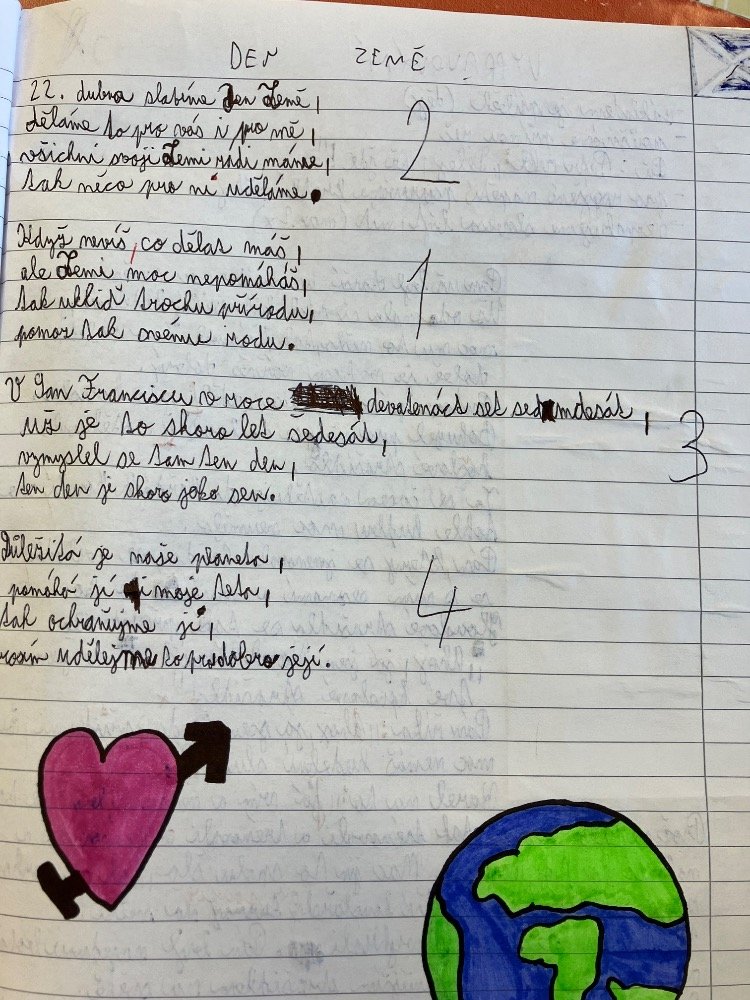 DEN ZEMĚ
22. dubna slavíme Den Země,
děláme to pro vás i pro mě,
všichni svoji Zemi rádi máme,
tak něco pro ni uděláme.
2
Když nevíš, co dělat máš,
ale Zemi moc nepomáháš,
tak ukliď trochu přírodu,
pomoz tak svému rodu.
1
V San Franciscu v roce devatenáct set sedmdesát,
už je to skoro let šedesát,
vzmyslel se tam ten den,
ten den je skoro jako sen.
3
Důležitá je naše planeta,
pomáhá jí i moje teta,
tak ochraňujme ji,
udělejme to pro dobro její.
4